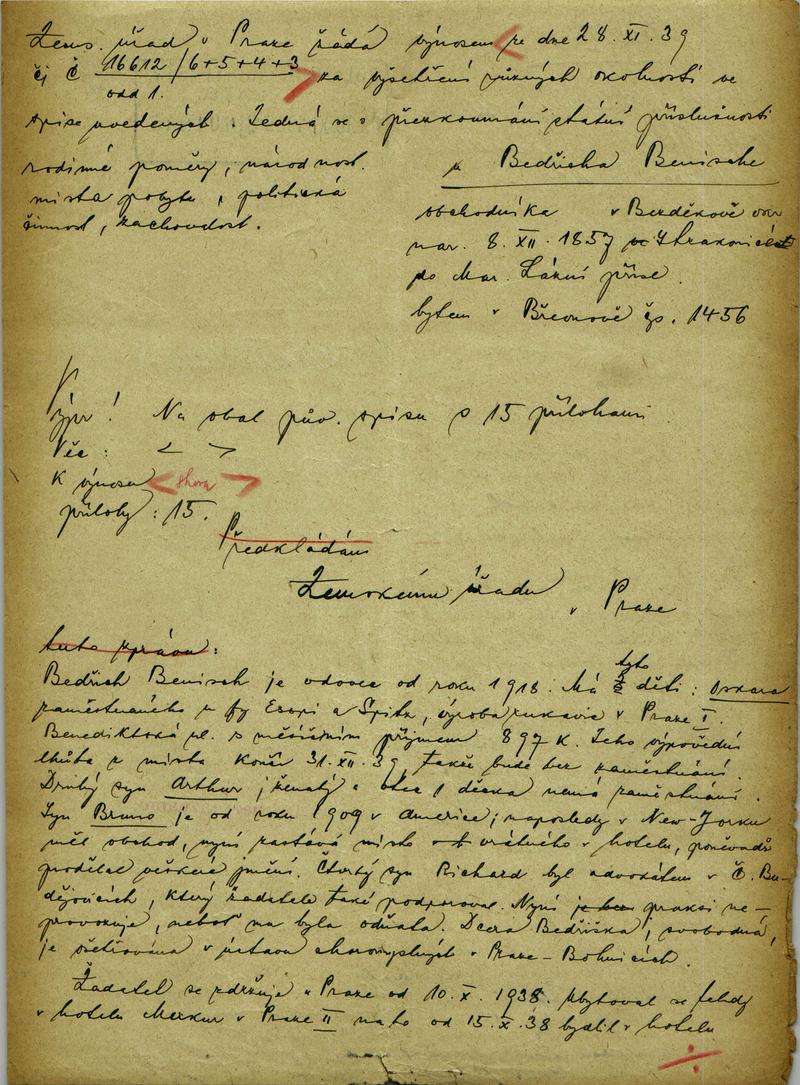 Zems. úřad v Praze žádá výnosem ze dne 28. XI. 39
čj č 16612/6+5+4+3 za vyšetření různých okolností ve
odd 1.
spise uvedených. Jedná se o přezkoumání státní příslušnosti
rodinné poměry, národnost.
místa pobytu, politická
činnost, zachovalost.
u Bedřicha Benische
obchodníka v Bezděkově
nar. 8. XII. 1857 ve
do Mar. Lázní přísl.
bytem v Břevnově čp. 1456
! Na obal pův. spisu s 15 přílohami
Věc: < >
K výnosu < shora >
přílohy: 15.
Předkládám
Zemskému úřadu v Praze
tuto zprávu:
Bedřich Benisch je vdovec od roku 1918. Má tyto děti: Oskara
zaměstnaného u fy Espi a Spitz, výroba rukavic v Praze I.
Benediktská ul. s měsíčním příjmem 897 K. Jeho výpovědní
lhůta z místa končí 31. XII. 39, takže bude bez zaměstnání.
Druhý syn Arthur, ženatý a otec 1 děcka nemá zaměstnání.
Syn Bruno je od roku 1909 v Americe; naposledy v New-Jorku
měl obchod, nyní zastává místo vrátného v hotelu, poněvadž
prodělal veškeré jmění. Čtvrtý syn Richard byl advokátem v Č. Bu-
dějovicích, který žadatele také podporoval. Nyní je bez praksi ne-
provozuje, neboť mu byla odňata. Dcera Bedřiška, svobodná,
je ošetřována v ústavu choromyslných v Praze - Bohnicích.
Žadatel se zdržuje v Praze od 10. X. 1938. Ubytoval se tehdy
v hotelu Merkur v Praze II nato od 15. X. 38 bydlil v hotelu